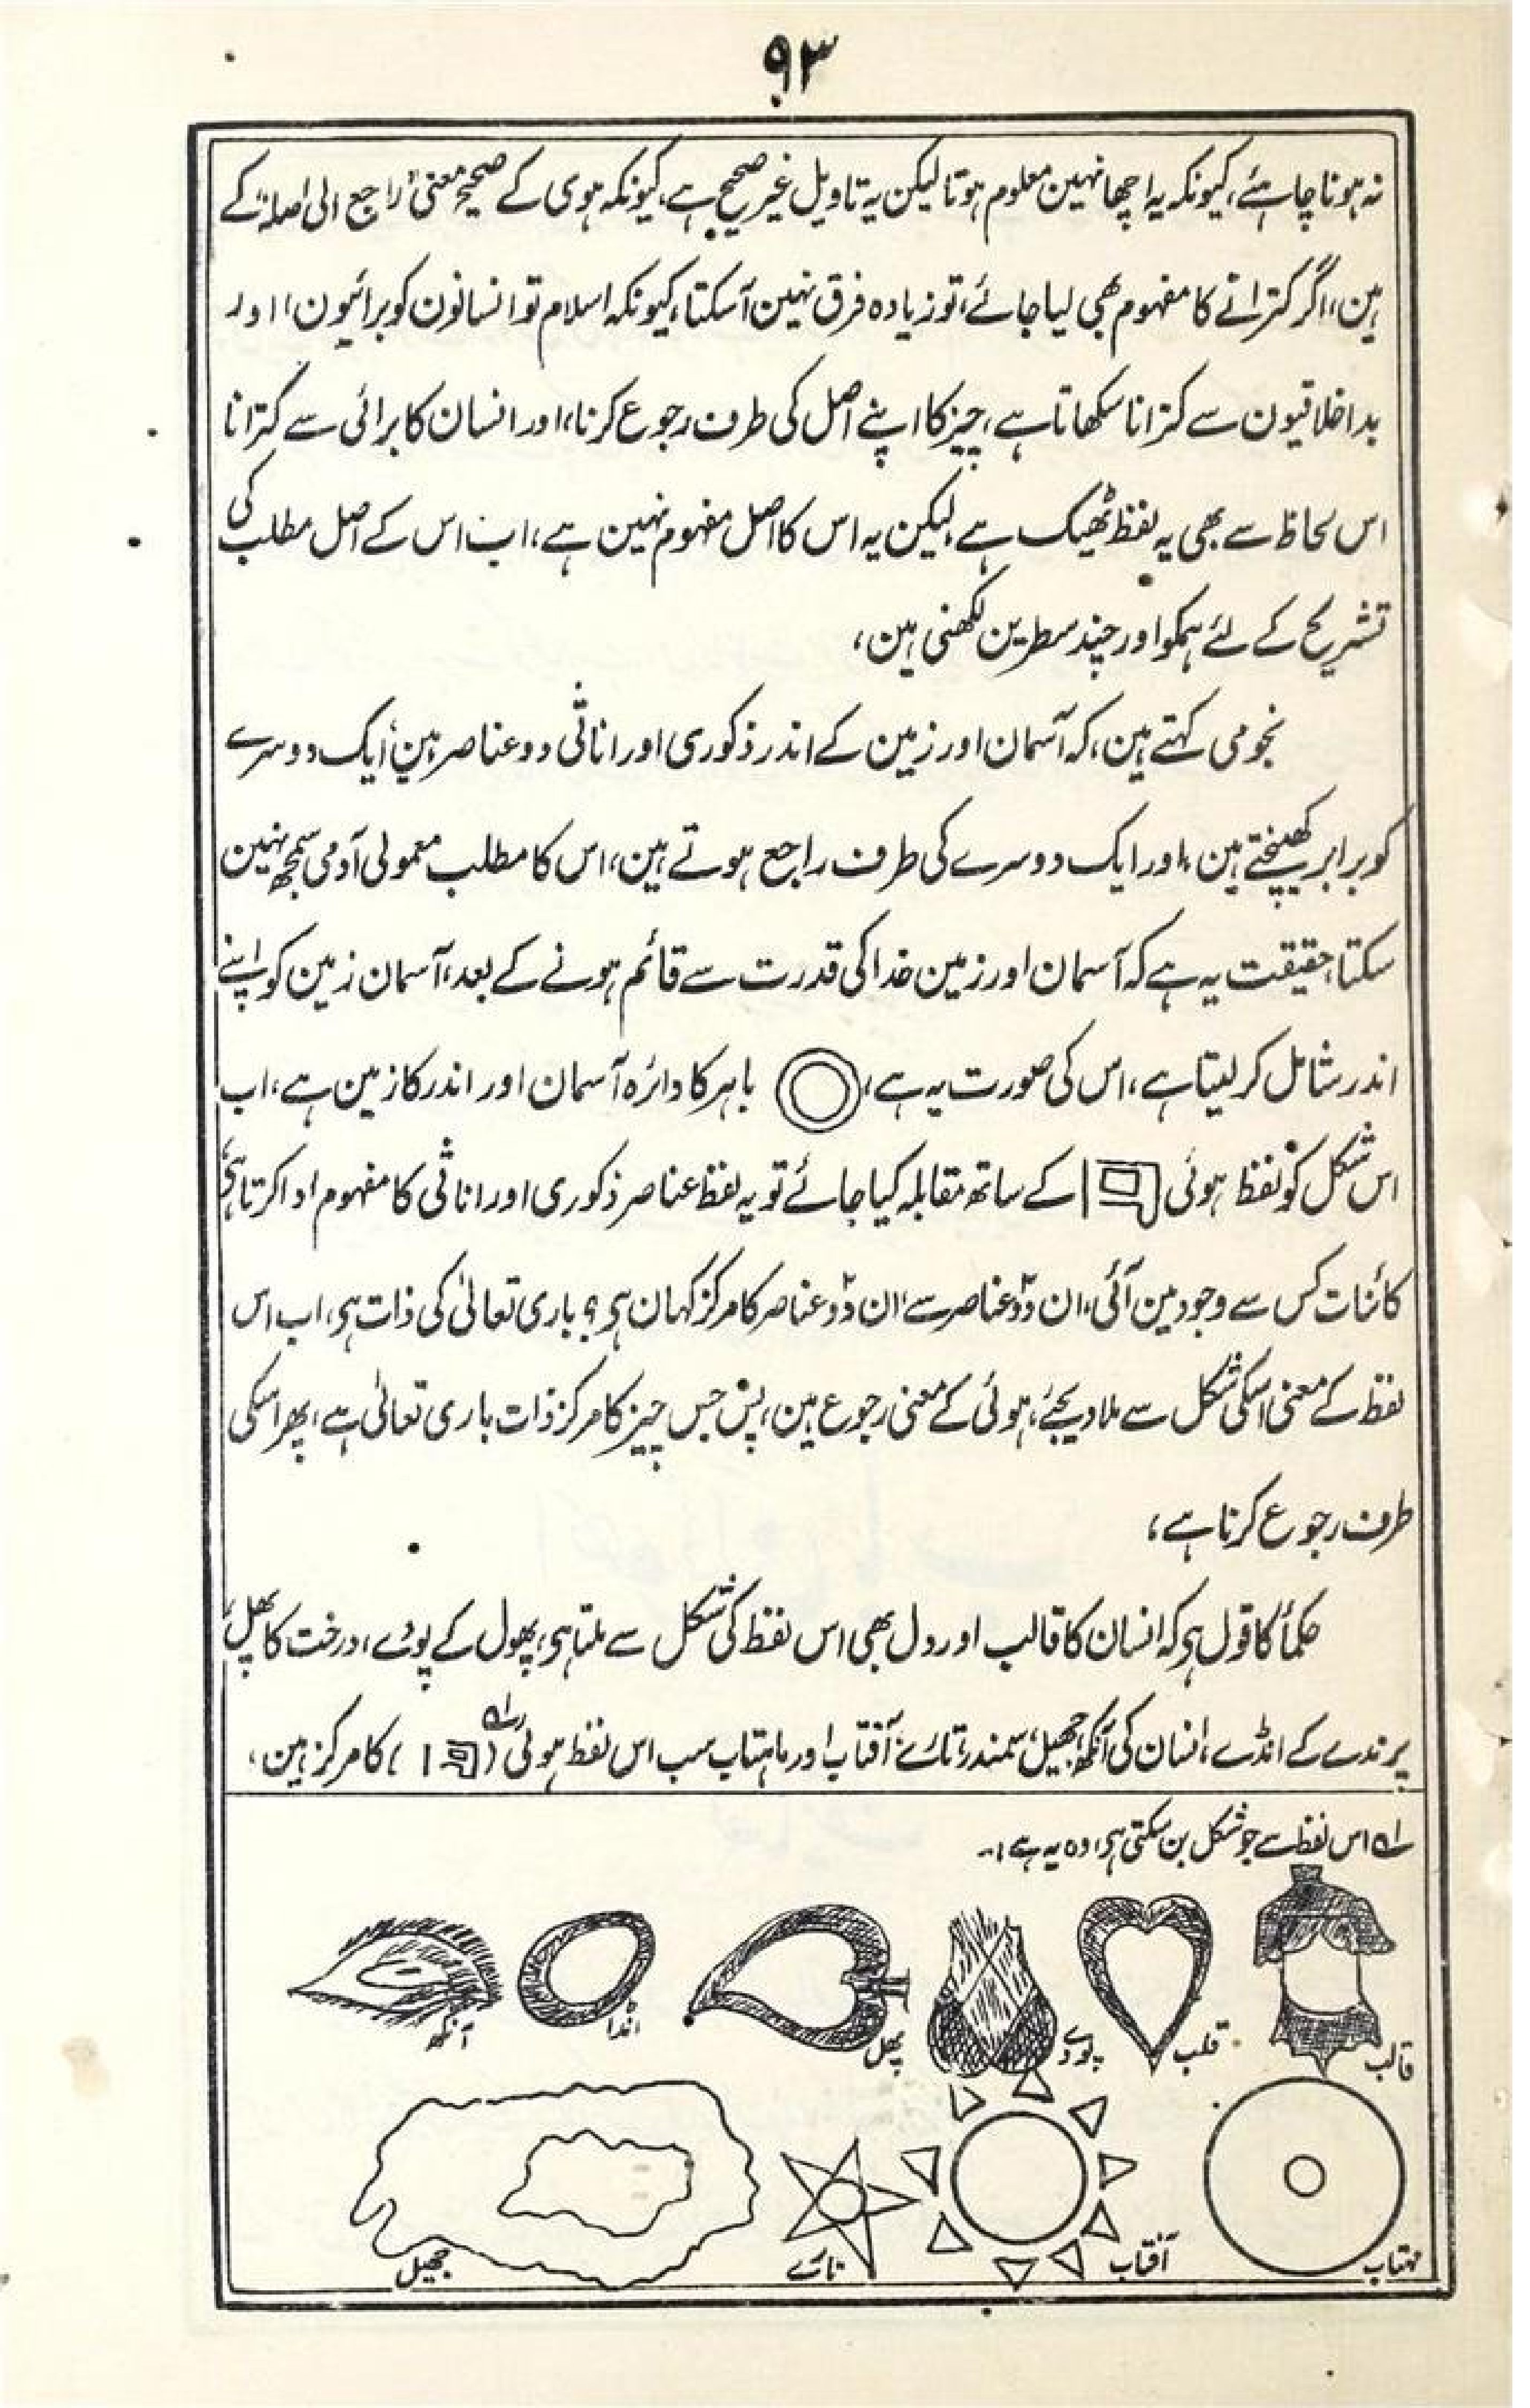 ۹۳
نہ ہونا چاہئے، کیونکہ یہ اچھا نہین معلوم ہوتا لیکن یہ تاویل غیر صحیح ہے، کیونکہ ہوی کے صحیح معنی "راجع الی اصلہ" کے
ہین، اگر کترانے کا مفہوم بھی لیا جائے، تو زیادہ فرق نہین آسکتا، کیونکہ اسلام تو انسانون کو برائیون، اور
بداخلاقیون سے کترانا سکھاتا ہے، چیز کا اپنے اصل کی طرف رجوع کرنا، اور انسان کا برائی سے کترانا
اس لحاظ سے بھی یہ لفظ ٹھیک ہے، لیکن یہ اس کا اصل مفہوم نہین ہے، اب اس کے اصل مطلب کی
تشریح کے لئے ہمکو اور چند سطرین لکھنی ہین،
نجومی کہتے ہین، کہ آسمان اور زمین کے اندر ذکوری اور اناثی دو عناصر ہین، ایک دوسرے
کو برابر کھینچتے ہین، اور ایک دوسرے کی طرف راجع ہوتے ہین، اس کا مطلب معمولی آدمی سمجھ نہین
سکتا، حقیقت یہ ہے کہ آسمان اور زمین خدا کی قدرت سے قائم ہونے کے بعد، آسمان زمین کو اپنے
اندر شامل کر لیتا ہے، اس کی صورت یہ ہے، باہر کا دائرہ آسمان اور اندر کا زمین ہے، اب
اس شکل کو لفظ ہوئی کے ساتھ مقابلہ کیا جائے تو یہ لفظ عناصر ذکوری اور اناثی کا مفہوم ادا کرتا ہی،
کائنات کس سے وجود مین آئی، ان دو عناصر سے، ان دو عناصر کا مرکز کہان ہی؟ باری تعالیٰ کی ذات ہی، اب اس
لفظ کے معنی اسکی شکل سے ملا دیجئے، ہوئی کے معنی رجوع ہین، پس جس چیز کا مرکز ذات باری تعالیٰ ہے، پھر اسکی
طرف رجوع کرنا ہے،
حکماٗ کا قول ہی کہ انسان کا قالب اور دل بھی اس لفظ کی شکل سے ملتا ہی، پھول کے پودے، درخت کا پھل،
پرندے کے انڈے، انسان کی آنکھ، جھیل، سمندر، تارے، آفتاب اور ماہتاب سب اس لفظ ہوئی (۱ہ) کا مرکز ہین،
لہ اس لفظ سے جو شکل بن سکتی ہی، وہ یہ ہے:۔
قالب قلب پودے پھل انڈا آنکھ
مہتاب آفتاب تارے جھیل